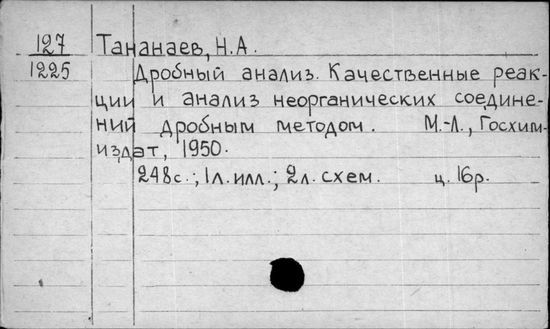 127 Тананаев, Н.А.
1225 Дробный анализ. Качественные реак-
ции и анализ неорганических соедине-
ний дробным методом. М.-Л., Госхим-
издат, 1950.
248с.; 1л. илл.; 2л. схем. ц. 16р.